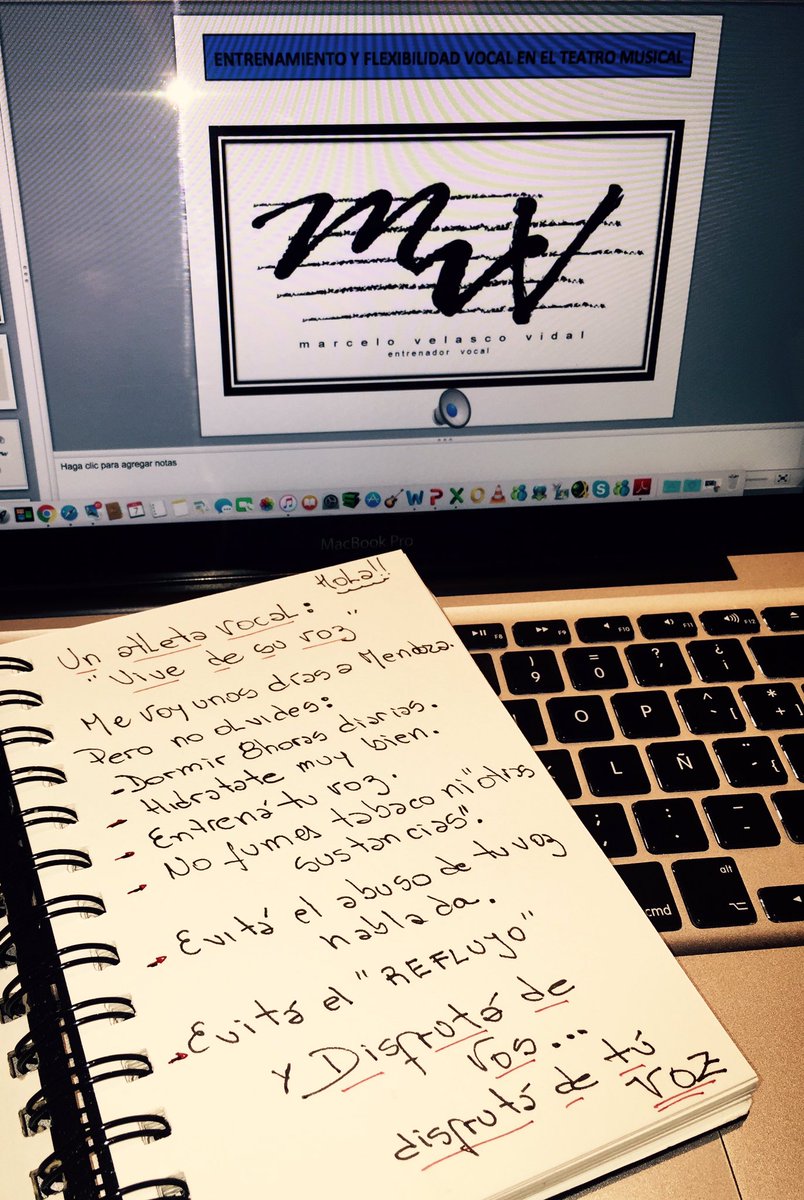 ENTRENAMIENTO Y FLEXIBILIDAD VOCAL EN EL TEATRO MUSICAL
mvv
marcelo velasco vidal
entrenador vocal
Haga clic para agregar notas
MacBook Pro
Hola!!
Un atleta vocal:
"Vive de su voz"
Me voy unos días a Mendoza.
Pero no olvides:
- Dormir 8 horas diarias.
- Hidratate muy bien.
- Entrená tu voz.
- No fumes tabaco ni "otras
sustancias".
- Evitá el abuso de tu voz
hablada.
- Evitá el "REFLUYO"
y Disfrutá de
vos...
disfrutá de tú
VOZ
F8
F9
F10
F11
F12
)
9
=
0
?
'
¿
¡
O
P
^
`
[
*
+
]
L
Ñ
¨
´
{
;
,
:
.
_
-
cmd
alt